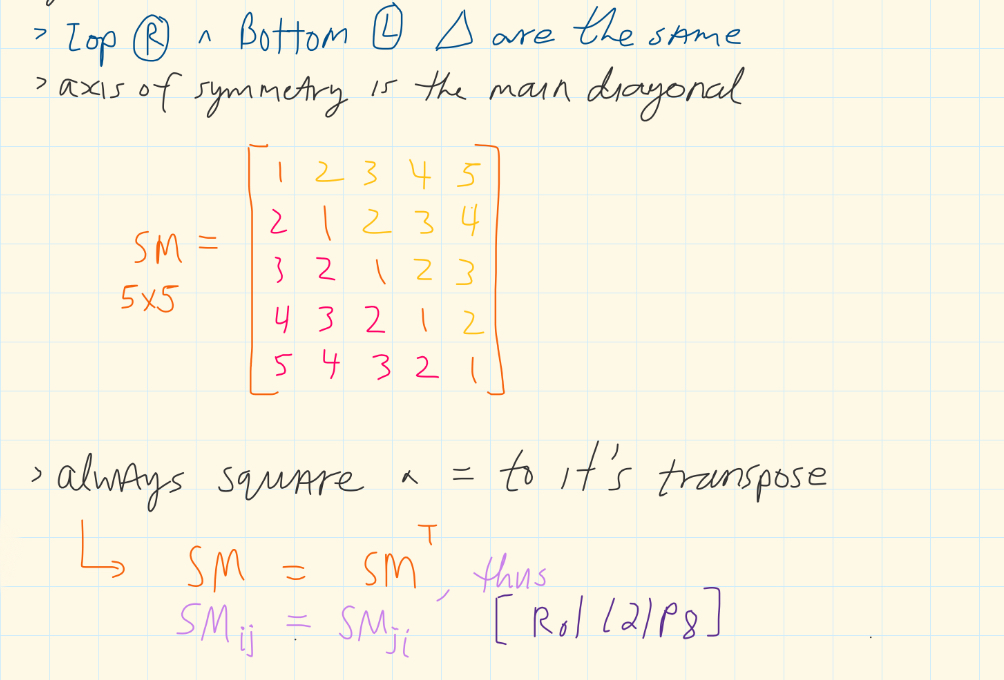 > Top Ⓡ ^ Bottom Ⓛ △ are the same
> axis of symmetry is the main diagonal
1 2 3 4 5
2 1 2 3 4
SM =
3 2 1 2 3
5x5
4 3 2 1 2
5 4 3 2 1
> always square ^ = to it's transpose
↳ SM = SMᵀ, thus
SMij = SMji